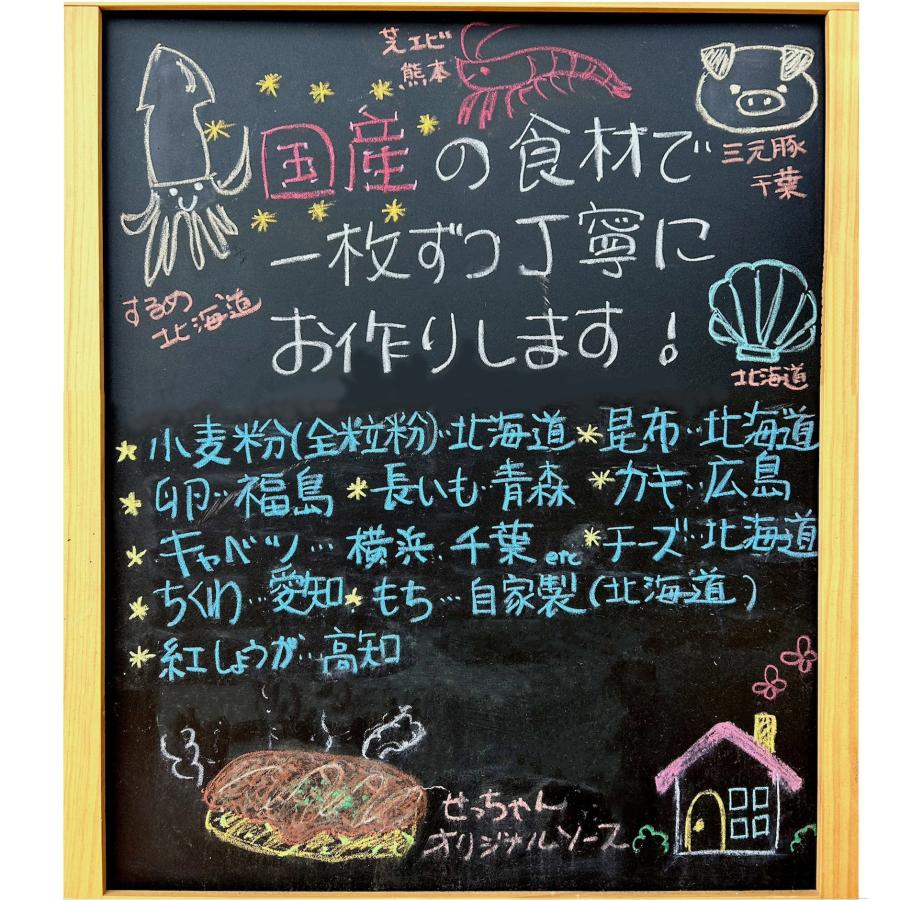 芝エビ
熊本
三元豚
千葉
国産の食材で
一枚ずつ丁寧に
お作りします!
するめ
北海道
北海道
小麦粉(全粒粉)…北海道 昆布…北海道
卵…福島 長いも…青森 カキ…広島
キャベツ…横浜、千葉etc チーズ…北海道
ちくわ…愛知 もち…自家製(北海道)
紅しょうが…高知
せっちゃん
オリジナルソース